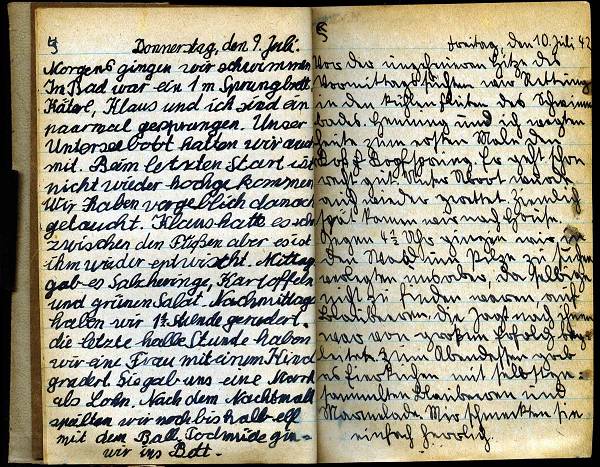 §
Donnerstag, den 9. Juli.
Morgens gingen wir schwimmen
Im Bad war ein 1 m Sprungbrett
Kätere, Klaus und ich sind ein
paarmal gesprungen. Unser
Unterseeboot hatten wir auch
mit. Beim letzten Start ist
nicht wieder hochgekommen
Wir haben vergeblich danach
getaucht. Klaus hatte es schon
zwischen den Füßen aber es ist
ihm wieder entwischt. Mittag
gab es Salzheringe, Kartoffeln
und grünen Salat. Nachmittags
haben wir 1½ Stunde gerudert.
die letzte halbe Stunde haben
wir eine Frau mit einem Kind
gradert. Sie gab uns eine Mark
als Lohn. Nach dem Nachtmahl
spielten wir noch bis halb elf
mit dem Ball. Todmüde gin=
wir ins Bett.
§
Freitag, den 10. Juli 42
Vor der ungeheuren Hitze des
Vormittags suchten wir Rettung
in den kühlen Fluten des Schwimm
bads. Henning und ich wagten
heute zum ersten Male den
Kopfsprung. Er geht schon
recht gut. Unser Uboot wurde
auch wieder gerettet. Ziemlich
spät kamen wir nach Hause.
Gegen 4½ Uhr gingen wir in
den Wald um Pilze zu suchen
aber, da selbige
nicht zu finden waren, auf
Blaubeeren. Die Jagd nach ihnen
war von großem Erfolg
Zum Abendessen gab
es Eierkuchen mit selbstge=
sammelten Blaubeeren und
Marmelade. Wir schmeckten sie
einfach herrlich.